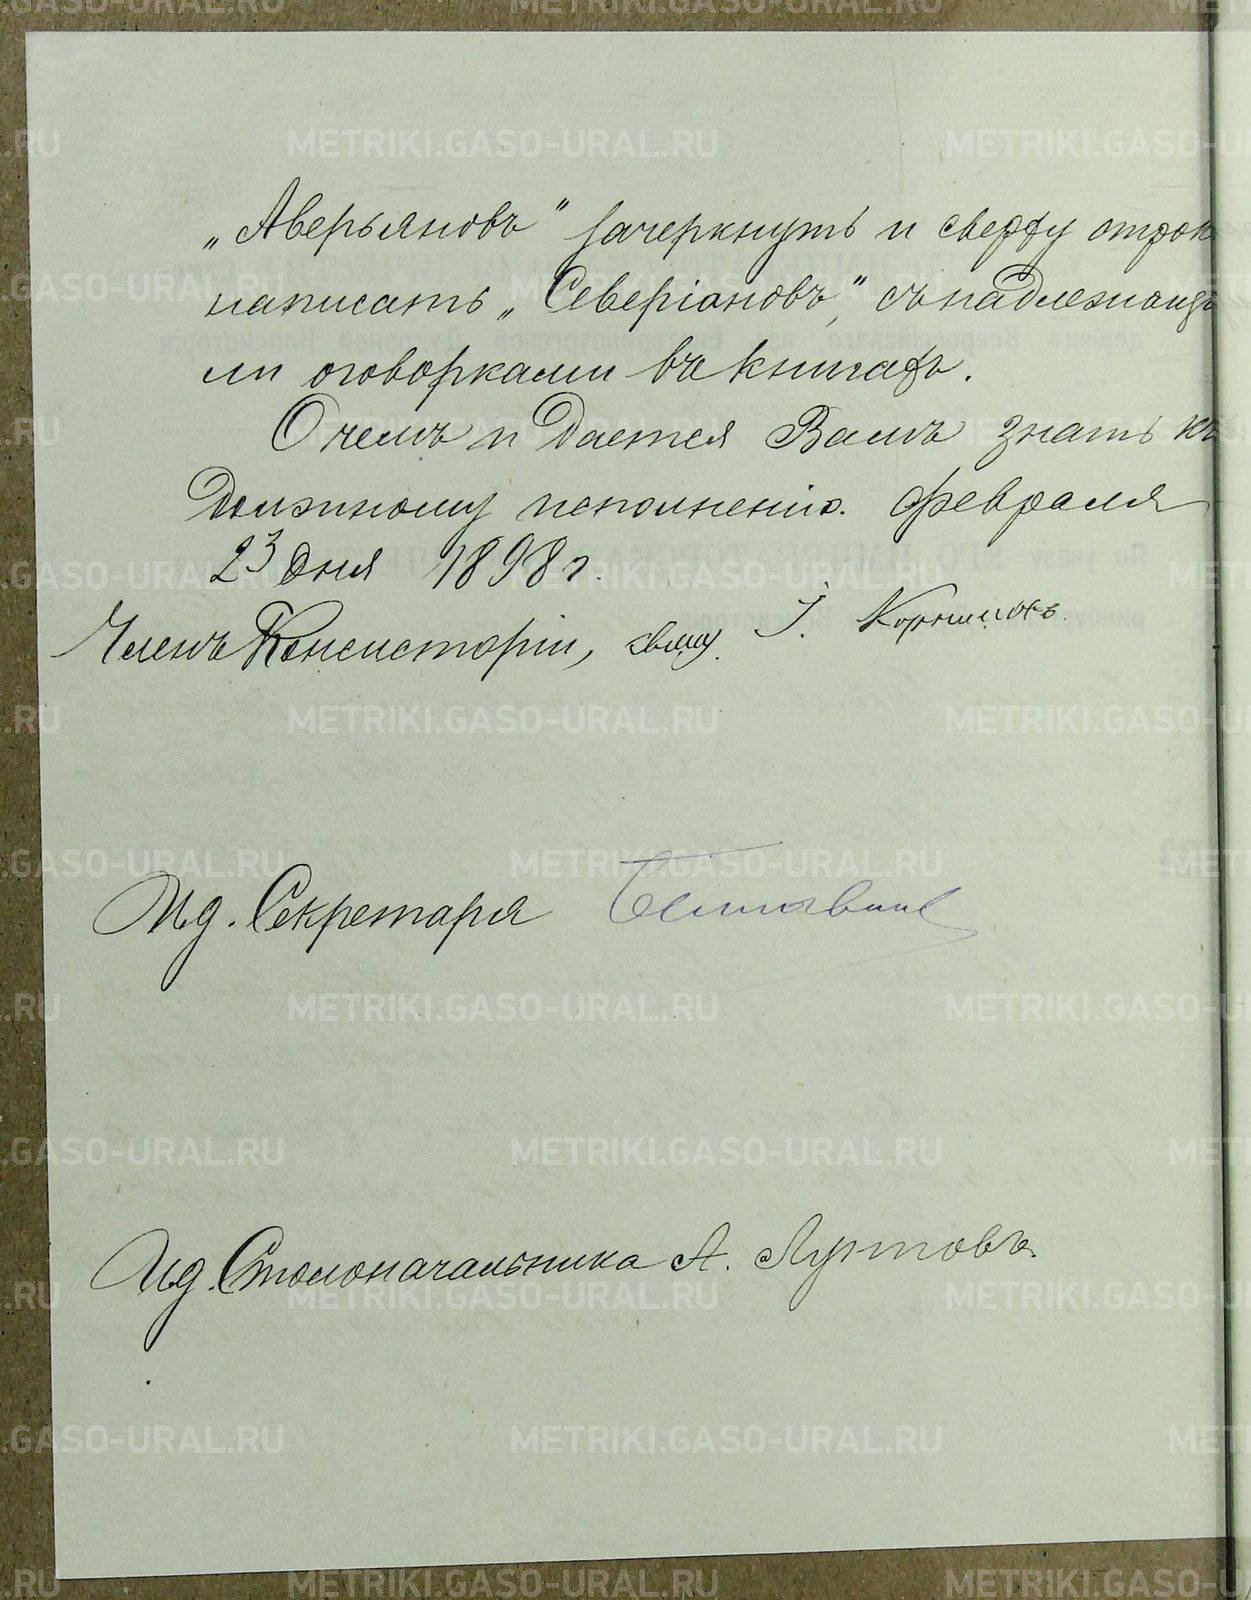 „Аверьяновъ" зачеркнуть и сверху строк
написать „Северіановъ", съ надлежащи
ми оговорками въ книгахъ.
О чемъ и дается Вамъ знать къ
должному исполненію. Февраля
23 дня 1898 г.
Членъ Консисторіи, свящ. І.
И.д. Секретаря
И.д. Столоначальника А.
METRIKI.GASO-URAL.RU